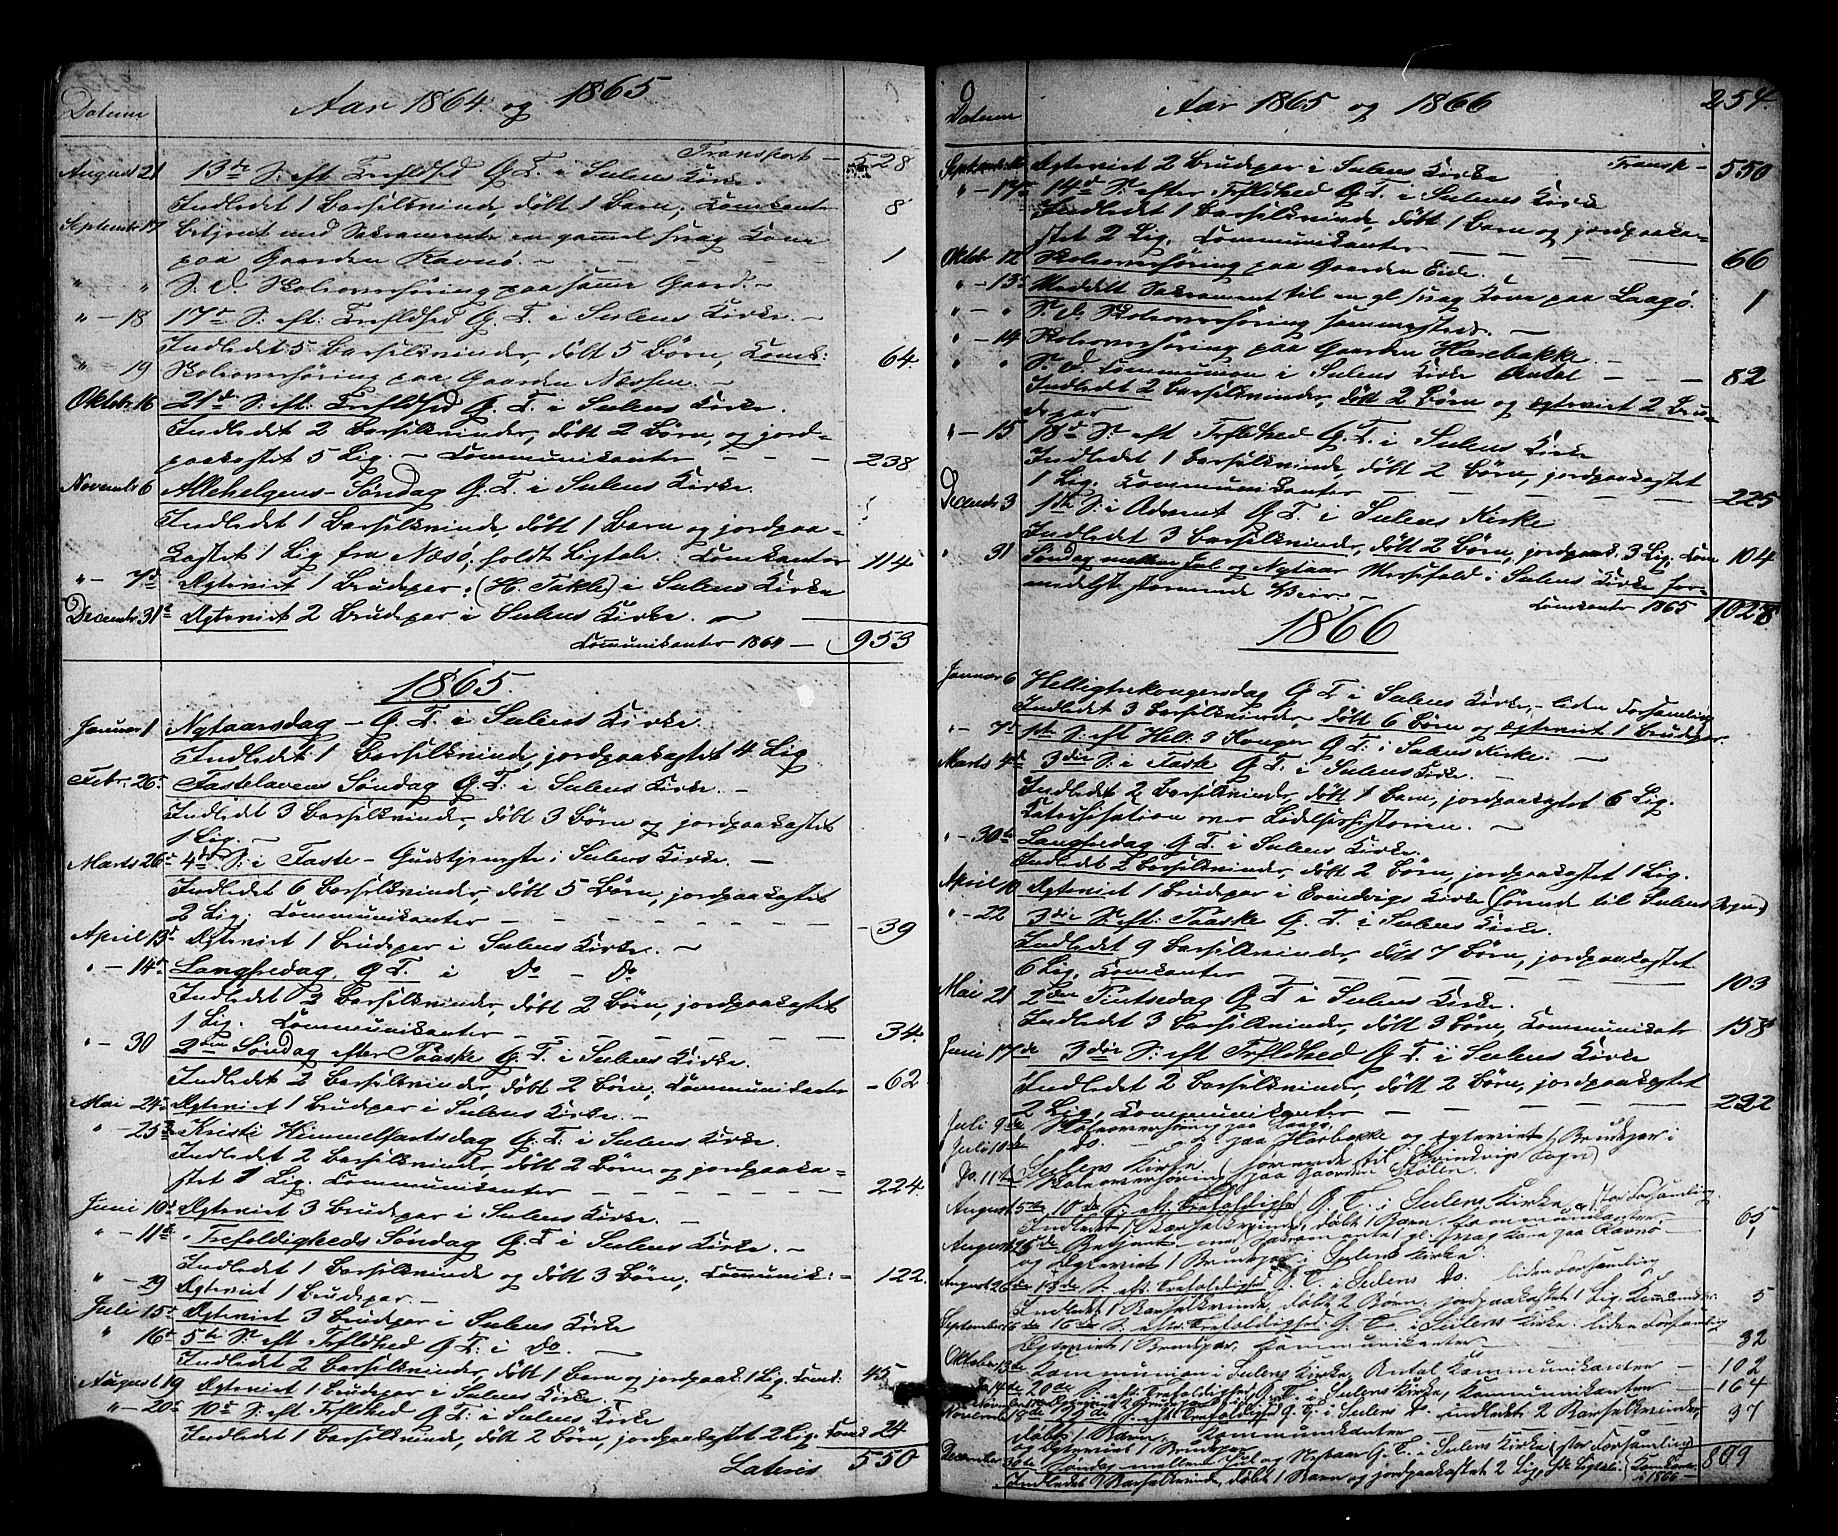 Datum
Aar 1864 og 1865
Transport — 528
August 21 13de S. eft Trefldhed G. T. i Sulens Kirke.
Indledet 1 Barselkvinde, døbt 1 Barn, Comkanter 8
Septembr 17 betjent med Sakramente en gammel svag Kone
paa Gaarden Ravnø — — — — — 1
" " S. d. Skoleoverhøring paa samme Gaard. —
" — 18 17de S: eft: Trefldhed G. T. i Sulens Kirke. —
Indledet 5 Barselkvinder, døbt 5 Børn, Comk: 64.
" 19 Skoleoverhøring paa Gaarden Næssen. —
Oktobr 16 21de S: eft: Trefldhed G. T. i Sulens Kirke.
Indledet 2 Barselkvinder, døbt 2 Børn, og jord-
paakastet 5 Lig. — Communikanter — — — 238
Novembr 6 Allehelgens-Søndag G. T. i Sulens Kirke.
Indledet 1 Barselkvinde, døbt 1 Barn og jordpaa-
kastet 1 Lig fra Næsø, holdt Ligtale. Comkanter 114
" — 7de Ægteviet 1 Brudepar: (H. Takle) i Sulens Kirke
Decembr 31te Ægteviet 2 Brudepar i Sulens Kirke. —
Communikanter 1864 — 953
1865.
Januar 1 Nytaarsdag — G. T. i Sulens Kirke.
Indledet 1 Barselkvind, jordpaakastet 4 Lig
Febr. 26. Fastelavens Søndag G. T. i Sulens Kirke. —
Indledet 3 Barselkvinder, døbt 3 Børn og jordpaakastet
1 Lig. —
Marts 26 4de S: i Faste — Gudstjeneste i Sulens Kirke. —
Indledet 6 Barselkvinder, døbt 5 Børn, jordpaakastet
2 Lig. Communikanter — — — — — 39
April 13 Ægteviet 1 Brudepar i Sulens Kirke. —
" — 14 Langfredag, G T. i Do — Do
Indledet 3 Barselkvinder, døbt 2 Børn, jordpaakastet
1 Lig. Communikanter — — — — — 34.
" — 30 2den Søndag efter Paaske G. T. i Sulens Kirke.
Indledet 2 Barselkvinder, døbt 2 Børn, Communikanter — 62
Mai 24 Ægteviet 1 Brudepar i Sulens Kirke. —
" — 25 Kristi Himmelfartsdag G. T. i Sulens Kirke.
Indledet 2 Barselkvinder, døbt 2 Børn og jordpaaka-
stet 1 Lig. Communikanter — — — — — 224.
Juni 10 Ægteviet 3 Brudepar i Sulens Kirke. —
" — 11te Trefoldigheds Søndag G. T. i Sulens Kirke. —
Indledet 1 Barselkvinde og døbt 3 Børn; Communik: — 122.
" — 29 Ægteviet 1 Brudepar. —
Juli 15 Ægteviet 3 Brudepar i Sulens Kirke
" 16 5te S. eft Trefldhed G. T. i Do. —
Indledet 2 Barselkvinder, døbt 1 Barn og jordpaak. 1 Lig. Comk. 45
August 19 Ægteviet 1 Brudepar i Sulens Kirke. —
" — 20 10de S: eft Trefldhed G. T: i Sulens Kirke
Indledet 1 Barselkvinde, døbt 2 Børn, jordpaakastet 2 Lig. Comk 24
Lateris 550
Datum
Aar 1865 og 1866
254.
Ægteviet 2 Brudepar i Sulens Kirke Transp — 550
" — 17 14de S. efter Trfldhed G. T. i Sulens Kirke
Indledet 1 Barselkvinde, døbt 1 Barn og jordpaaka-
stet 2 Lig. Communikanter — — — — 66
Oktobr 12 Skoleoverhøring paa Gaarden Eide.
" — 13 Meddelt Sakrament til en gl svag Kone paa Laagø. 1
" — " S. D. Skoleoverhøring sammesteds. —
" — 14 Skoleoverhøring paa Gaarden Harebakke. —
" " S. D. Communion i Sulens Kirke Antal — — — 82
Indledet 2 Barselkvinder, døbt 2 Børn og ægteviet 2 Bru-
depar
" — 15 18de S. eft Trfldhed G. T. i Sulens Kirke
Indledet 1 Barselkvinde, døbt 2 Børn, jordpaakastet
1 Lig. Communikanter — — — — 225
Decembr 3 1ste S: i Advent G. T. i Sulens Kirke
Indledet 3 Barselkvinder, døbt 2 Børn, jordpaak. 3 Lig. Com 104
" 31 Søndag mellem Jul og Nytaar Messefald i Sulens Kirke for-
medelst stormende Veir. —
Comkanter 1865 1028
1866
Januar 6 Helligtrekongersdag G. T. i Sulens Kirke, — liden Forsamling
Indledet 3 Barselkvinder, døbt 6 Børn og ægteviet 1 Brudepar.
" — 7 1ste S. eft Hell. 3 Konger G. T. i Sulens Kirke. —
Marts 4de 3die S: i Faste G. T. i Sulens Kirke. —
Indledet 2 Barselkvinder, døbt 1 Barn, jordpaakastet 6 Lig.
Katechisation over Lidelseshistorien. —
" — 30te Langfredag G. T. i Sulens Kirke.
Indledet 2 Barselkvinder, døbt 2 Børn, jordpaakastet 1 Lig.
April 10 Ægteviet 1 Brudepar i Evindvigs Kirke (hørende til Sulens Sogn)
" — 22 3die S. eft: Paaske G. T. i Sulens Kirke.
Indledet 9 Barselkvinder, døbt 7 Børn, jordpaakastet
6 Lig, Comkanter — — — — — 103
Mai 21 2den Pintsedag G. T. i Sulens Kirke.
Indledet 3 Barselkvinder, døbt 3 Børn, Communikatr 158
Juni 17de 3die S: eft Trfldhed G. T. i Sulens Kirke
Indledet 2 Barselkvinder, døbt 2 Børn, jordpaakastet
2 Lig, Communikanter — — — — 292
Juli 9de Skoleoverhøring paa Laagø.
Juli 10de do. — paa Harbakke og Ægteviet 1 Brudepar i
Sulens Kirke (hørende til Evindvigs Sogn)
Do. 11te Skoleoverhøring paa Gaarden Stølen.
August 5te 10de S. eft. Trefoldighed G. T. i Sulens Kirke, stor Forsamling.
Indledet 1 Barselkvinde, døbt 1 Barn. Communikanter — 65
August 25de Betjent med Sakramente 1 gl. svag Kone paa Ravnø — 1
og Ægteviet 1 Brudepar i Sulens Kirke.
August 26de 13de S. eft. Trefoldighed G. T. i Sulens Do. liden Forsamling
Indledet 1 Barselkvinde, døbt 2 Børn, jordpaakastet 1 Lig. Komkanter. 5
September 16de 16de S. efter Trefoldighed G. T. i Sulens Kirke. liden Forsamling
Ægteviet 1 Brudepar, Kommunikanter — 32
Oktober 13de Kommunion i Sulens Kirke, Antal Kommunikanter — 102
Do 14de 20de S. eft. Trefoldighed G. T. i Sulens Kirke, Kommunikanter — 164
S. eft Trefoldighed G. T. i Sulens Do. indledet 2 Barselkvinder, 37
døbt 1 Barn, Kommunikanter —
og Ægteviet 1 Brudepar
December 30te Søndag mellem Jul og Nytaar G. T. i Sulens Kirke (stor Forsamling)
Indledet 1 Barselkvinde, døbt 1 Barn og jordpaakastet 2 Lig, Ligtale. Komkanter i 1866 — 809